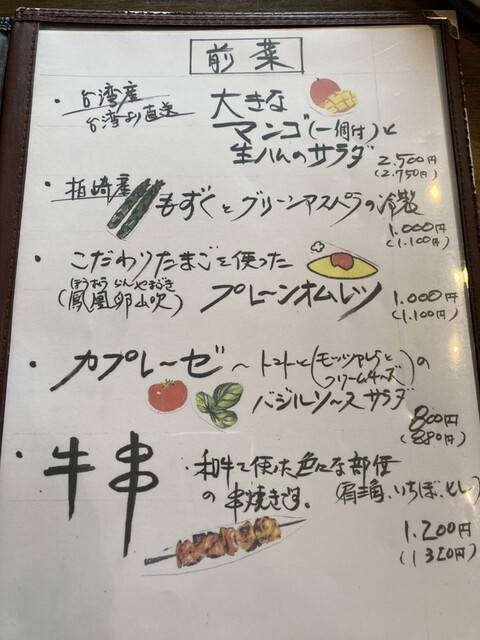 前菜
・台湾産
台湾より直送
大きな
マンゴ(一個付)と
生ハムのサラダ
2.500円
(2.750円)
・柏崎産
もずくとグリーンアスパラの冷製
1.000円
(1.100円)
・こだわりたまごを使った
ほうおう らん やまぶき
(鳳凰卵山吹)
プレーンオムレツ
1.000円
(1.100円)
・カプレーゼ～トマトと(モッツァレラとクリームチーズ)の
バジルソースサラダ
800円
(880円)
・牛串
・和牛で使った色んな部位
の串焼きです。
(肩三角、いちぼ、とし)
1.200円
(1320円)